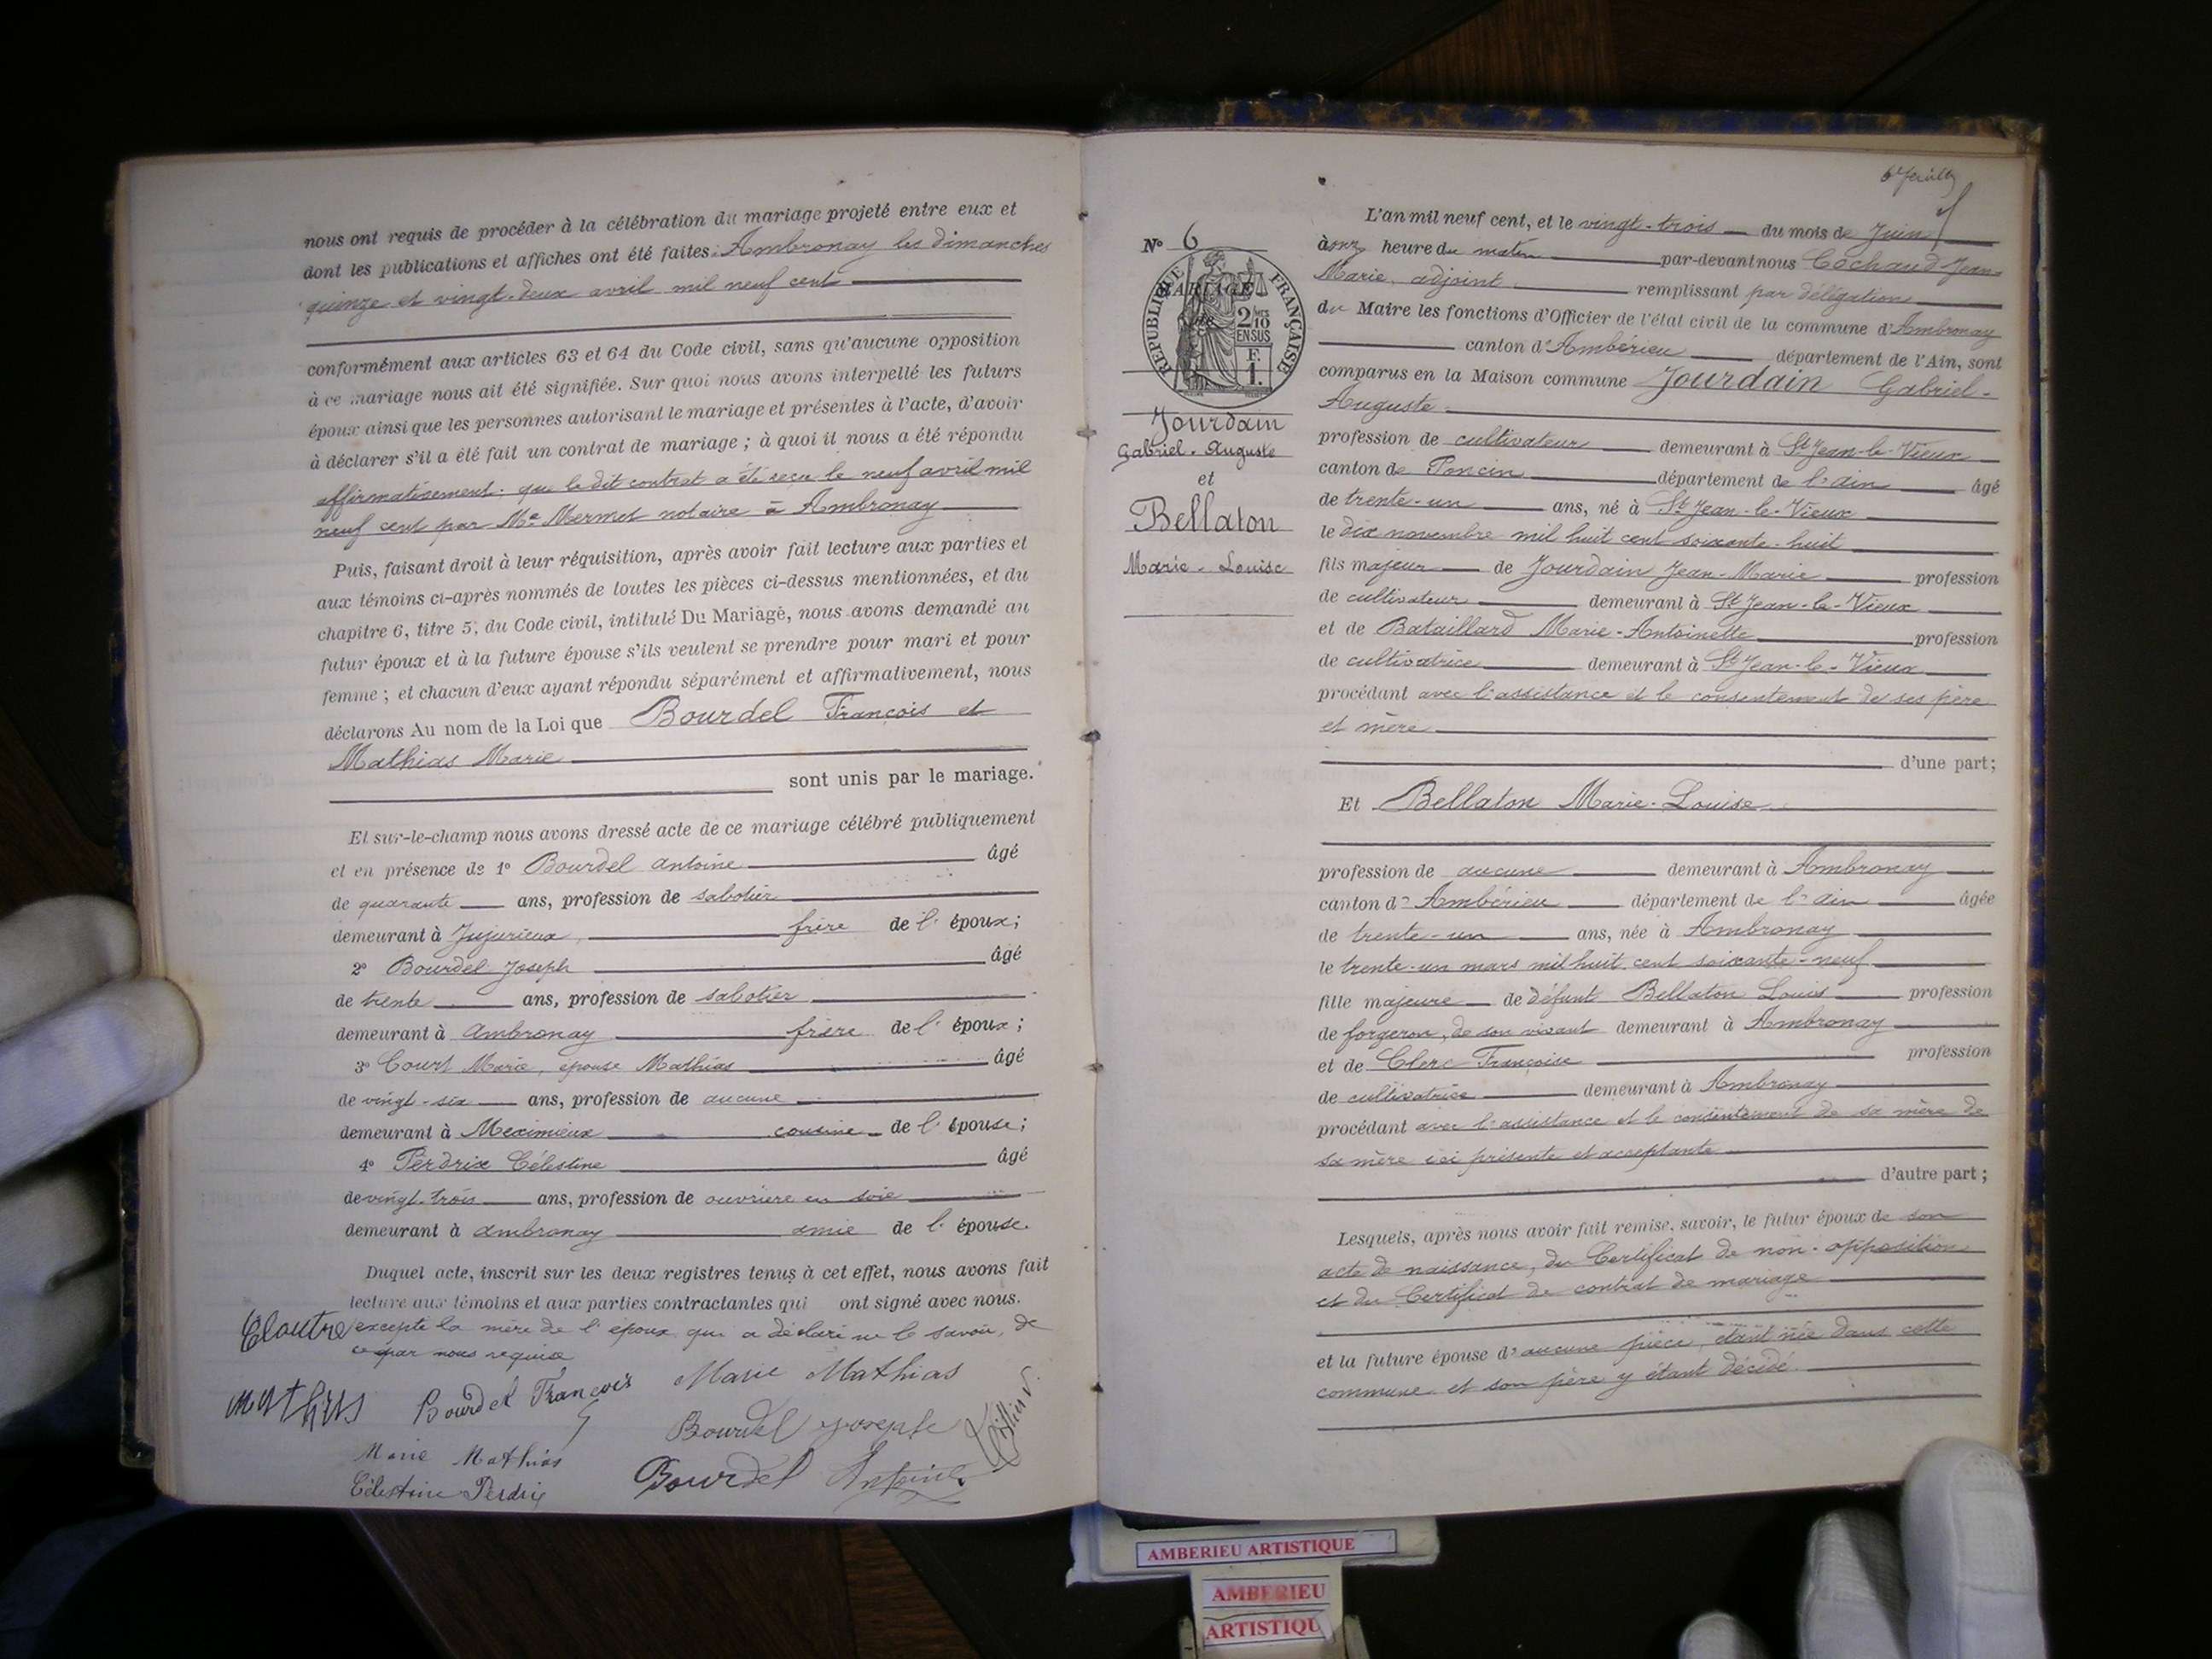 nous ont requis de procéder à la célébration du mariage projeté entre eux et
dont les publications et affiches ont été faites: Ambronay les dimanches
quinze et vingt-deux avril mil neuf cent
conformément aux articles 63 et 64 du Code civil, sans qu'aucune opposition
à ce mariage nous ait été signifiée. Sur quoi nous avons interpellé les futurs
époux ainsi que les personnes autorisant le mariage et présentes à l'acte, d'avoir
à déclarer s'il a été fait un contrat de mariage ; à quoi il nous a été répondu
affirmativement: que le dit contrat a été reçu le neuf avril mil
neuf cent par Me Mermet notaire à Ambronay
Puis, faisant droit à leur réquisition, après avoir fait lecture aux parties et
aux témoins ci-après nommés de toutes les pièces ci-dessus mentionnées, et du
chapitre 6, titre 5, du Code civil, intitulé Du Mariage, nous avons demandé au
futur époux et à la future épouse s'ils veulent se prendre pour mari et pour
femme ; et chacun d'eux ayant répondu séparément et affirmativement, nous
déclarons Au nom de la Loi que Bourdel François et
Mathias Marie
sont unis par le mariage.
Et sur-le-champ nous avons dressé acte de ce mariage célébré publiquement
et en présence de 1º Bourdel antoine âgé
de quarante ans, profession de sabotier
demeurant à Jujurieux, frère de l' époux;
2º Bourdel Joseph âgé
de trente ans, profession de sabotier
demeurant à Ambronay frère de l' époux ;
3º Court Marie, épouse Mathias âgé
de vingt-six ans, profession de aucune
demeurant à Meximieux cousine de l' épouse;
4º Perdrix Célestine âgé
de vingt-trois ans, profession de ouvrière en soie
demeurant à Ambronay amie de l' épouse.
Duquel acte, inscrit sur les deux registres tenus à cet effet, nous avons fait
lecture aux témoins et aux parties contractantes qui ont signé avec nous.
excepté la mère de l'époux qui a déclaré ne le savoir, de
ce par nous requise
Marie Mathias
Mathias Bourdel François
Bourdel Joseph
Marie Mathias
Bourdel Antoine
Célestine Perdrix
Nº 6
RÉPUBLIQUE FRANÇAISE
MARIAGE
de
2/10
EN SUS
F.
1.
Jourdain
Gabriel-Auguste
et
Bellaton
Marie-Louise
L'an mil neuf cent, et le vingt-trois du mois de Juin
à onze heure du matin par-devant nous Cochaud Jean-
Marie, adjoint remplissant par délégation
du Maire les fonctions d'Officier de l'état civil de la commune d'Ambronay
canton d'Ambérieu département de l'Ain, sont
comparus en la Maison commune Jourdain Gabriel-
Auguste
profession de cultivateur demeurant à St Jean-le-Vieux
canton de Poncin département de l'ain âgé
de trente-un ans, né à St Jean-le-Vieux
le dix novembre mil huit cent soixante-huit
fils majeur de Jourdain Jean-Marie profession
de cultivateur demeurant à St Jean-le-Vieux
et de Bataillard Marie-Antoinette profession
de cultivatrice demeurant à St Jean-le-Vieux
procédant avec l'assistance et le consentement de ses père
et mère
d'une part;
Et Bellaton Marie-Louise
profession de aucune demeurant à Ambronay
canton d'Ambérieu département de l'ain âgée
de trente-un ans, née à Ambronay
le trente-un mars mil huit cent soixante-neuf
fille majeure de défunt Bellaton Louis profession
de forgeron, de son vivant demeurant à Ambronay
et de Clerc Françoise profession
de cultivatrice demeurant à Ambronay
procédant avec l'assistance et le consentement de sa mère de
sa mère ici présente et acceptante
d'autre part ;
Lesquels, après nous avoir fait remise, savoir, le futur époux de son
acte de naissance, du Certificat de non-opposition
et du Certificat de contrat de mariage
et la future épouse d'aucune pièce, étant née dans cette
commune et son père y étant décédé.
AMBERIEU ARTISTIQUE
AMBERIEU
ARTISTIQU